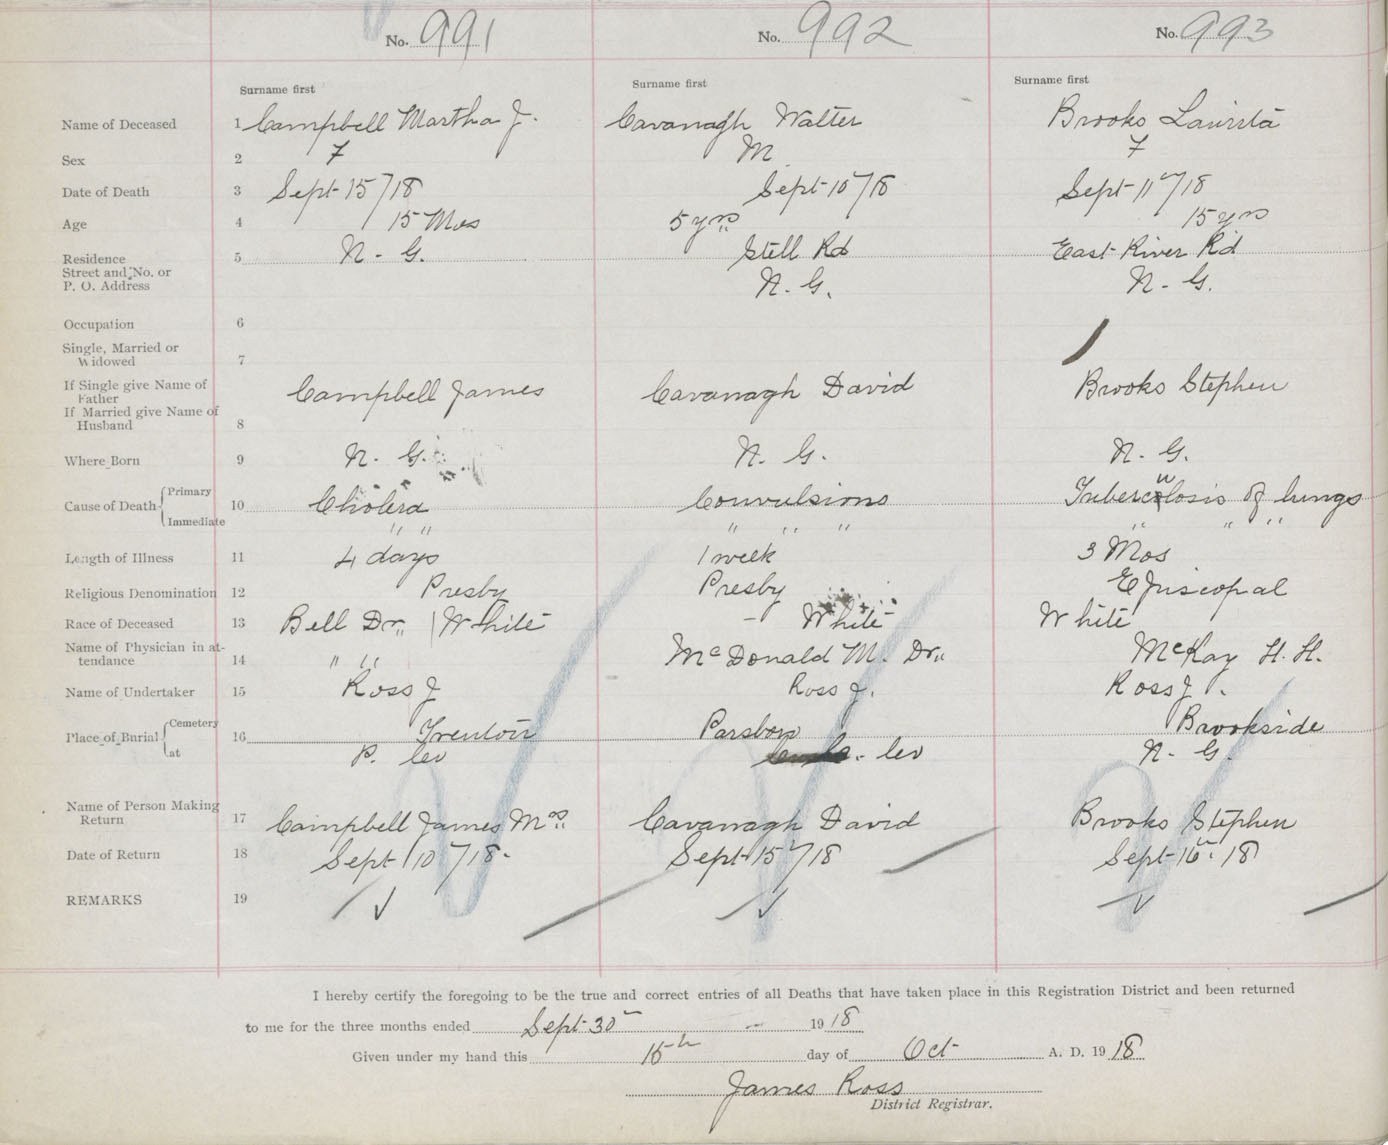 No. 991 No. 992 No. 993
Surname first Surname first Surname first
Name of Deceased 1 Campbell Martha J. Cavanagh Walter Brooks
Sex 2 F M F
Date of Death 3 Sept 15/18 Sept 10/18 Sept 11/18
Age 4 15 Mos 5 yrs 15 yrs
Residence 5 N. G. Stell Rd East River Rd
Street and No. or
P. O. Address N. G. N. G.
Occupation 6
Single, Married or
Widowed 7
If Single give Name of
Father Campbell James Cavanagh David Brooks Stephen
If Married give Name of
Husband 8
Where Born 9 N. G. N. G. N. G.
Cause of Death Primary
10 Cholera Convulsions Tuberculosis of lungs
Immediate " " " " " " " "
Length of Illness 11 4 days 1 week 3 Mos
Religious Denomination 12 Presby Presby Episcopal
Race of Deceased 13 Bell Dr. White White White
Name of Physician in at-
tendance 14 " " McDonald M. Dr. McKay H. H.
Name of Undertaker 15 Ross J Ross J. Ross J.
Place of Burial Cemetery
16 Trenton Brookside
at P. Co N. G.
Name of Person Making
Return 17 Campbell James Mrs Cavanagh David Brooks Stephen
Date of Return 18 Sept 10/18. Sept 15/18 Sept 16 18
REMARKS 19 ✓ ✓ ✓
I hereby certify the foregoing to be the true and correct entries of all Deaths that have taken place in this Registration District and been returned
to me for the three months ended Sept 30 1918
Given under my hand this 15th day of Oct A. D. 1918
James Ross
District Registrar.